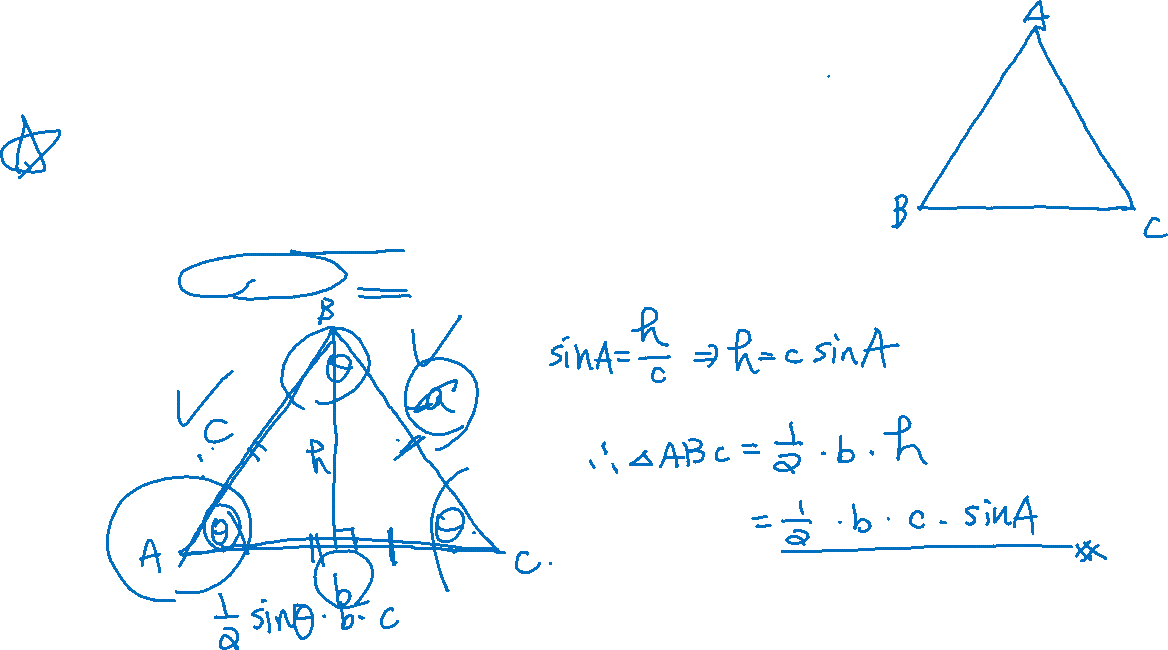 A
B
C
B
θ
a
c
h
θ
θ
A
b
C.
1/2 sinθ · b · c
sinA = h/c ⇒ h = c sinA
∴ △ABC = 1/2 · b · h
= 1/2 · b · c · sinA